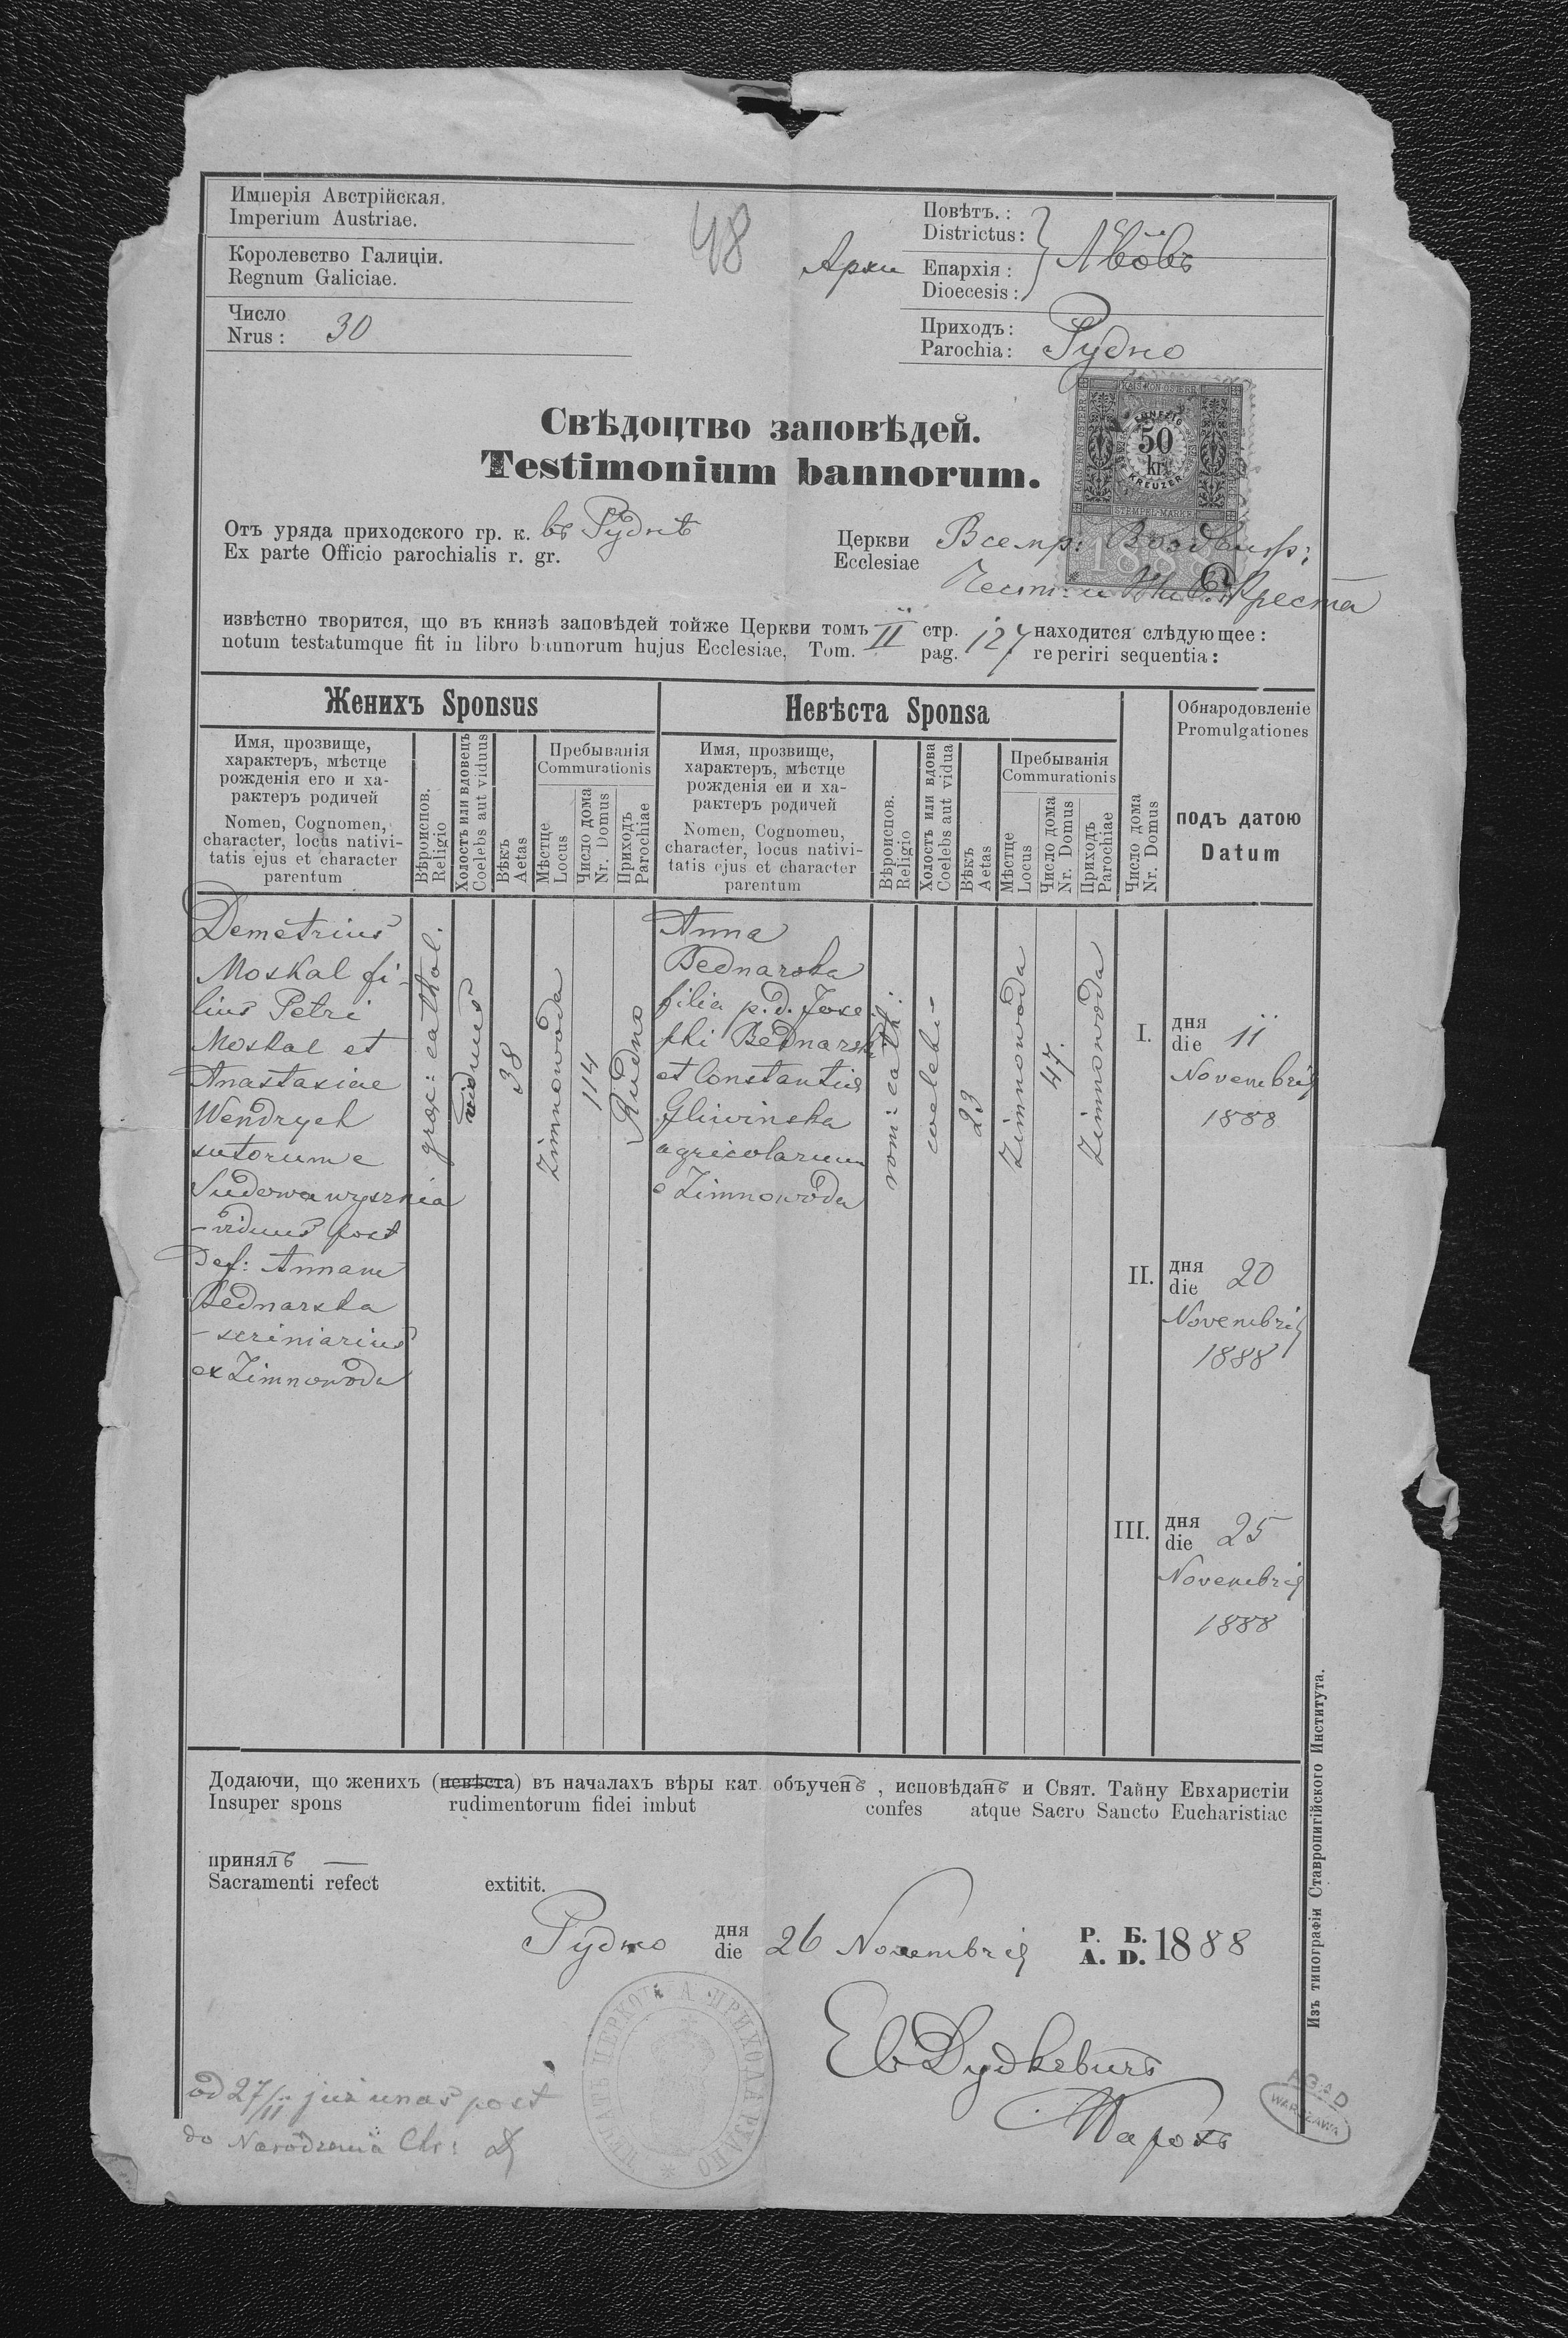 Имперія Австрійская.
Imperium Austriae.
Королевство Галиціи.
Regnum Galiciae.
Число
Nrus : 30
48
Повѣтъ. :
Districtus :
Львôвъ
Архи Епархія :
Dioecesis :
Приходъ :
Parochia : Рудно
KREUZER
50
kr.
STEMPEL-MARKE
1888
Свѣдоцтво заповѣдей.
Testimonium bannorum.
Отъ уряда приходского гр. к. въ Руднѣ
Ex parte Officio parochialis r. gr.
Церкви Всемр: Воздвиж:
Ecclesiae Честн: и Жив: Креста
извѣстно творится, що въ князѣ заповѣдей тойже Церкви томъ II стр. 127 находится слѣдующее :
notum testatumque fit in libro bannorum hujus Ecclesiae, Tom. pag. reperiri sequentia :
Женихъ Sponsus
Невѣста Sponsa
Обнародовленіе
Promulgationes
Имя, прозвище,
характеръ, мѣстце
рожденія его и ха-
рактеръ родичей
Nomen, Cognomen,
character, locus nativi-
tatis ejus et character
parentum
Вѣроиспов.
Religio
Холостъ или вдовецъ
Coelebs aut viduus
Вѣкъ
Aetas
Пребыванія
Commurationis
Мѣстце
Locus
Число дома
Nr. Domus
Приходъ
Parochiae
Имя, прозвище,
характеръ, мѣстце
рожденія еи и ха-
рактеръ родичей
Nomen, Cognomen,
character, locus nativi-
tatis ejus et character
parentum
Вѣроиспов.
Religio
Холостъ или вдова
Coelebs aut vidua
Вѣкъ
Aetas
Пребыванія
Commurationis
Мѣстце
Locus
Число дома
Nr. Domus
Приходъ
Parochiae
Число дома
Nr. Domus
подъ датою
Datum
Demetrius
Moskal fi-
lius Petri
Moskal et
Anastasiae
Wendrych
sutorum e
Sudowa wysznia
- viduus post
def: Annam
Bednarska
- scriniarius
ex Zimnowoda
graec: cathol.
viduus
38
Zimnowoda
114
Rudno
Anna
Bednarska
filia p. d. Jose
phi Bednarski
et Constantia
Gliwinska
agricolarum
e Zimnowoda
rom: cath:
coelebs
23
Zimnowoda
47.
Zimnowoda
I. дня
die 11
Novembris
1888
II. дня
die 20
Novembris
1888
III. дня
die 25
Novembris
1888
Додаючи, що женихъ (невѣста) въ началахъ вѣры кат. объученъ , исповѣданъ и Свят. Тайну Евхаристіи
Insuper spons rudimentorum fidei imbut confes atque Sacro Sancto Eucharistiae
принялъ —
Sacramenti refect extitit.
Рудно дня
die 26 Novembris Р. Б.
A. D. 1888
Ев Дудкевичъ
Парохъ
УРЯДЪ ЦЕРКОВ. ПРИХОДА РУДНО
od 27/11 już u nas post
do Narodzenia Chr:
AGAD
WARSZAWA
Изъ типографіи Ставропигійского Института.